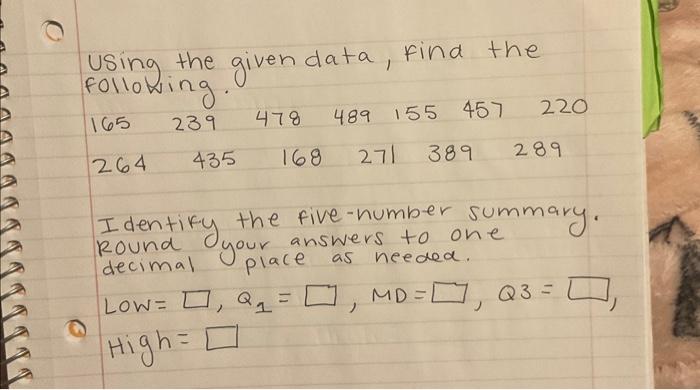 Using the given data, find the
following.
165 239 478 489 155 457 220
264 435 168 271 389 289
Identify the five-number summary.
Round your answers to one
decimal place as needed.
LOW= □, Q1 = □, MD=□, Q3 = □,
High= □